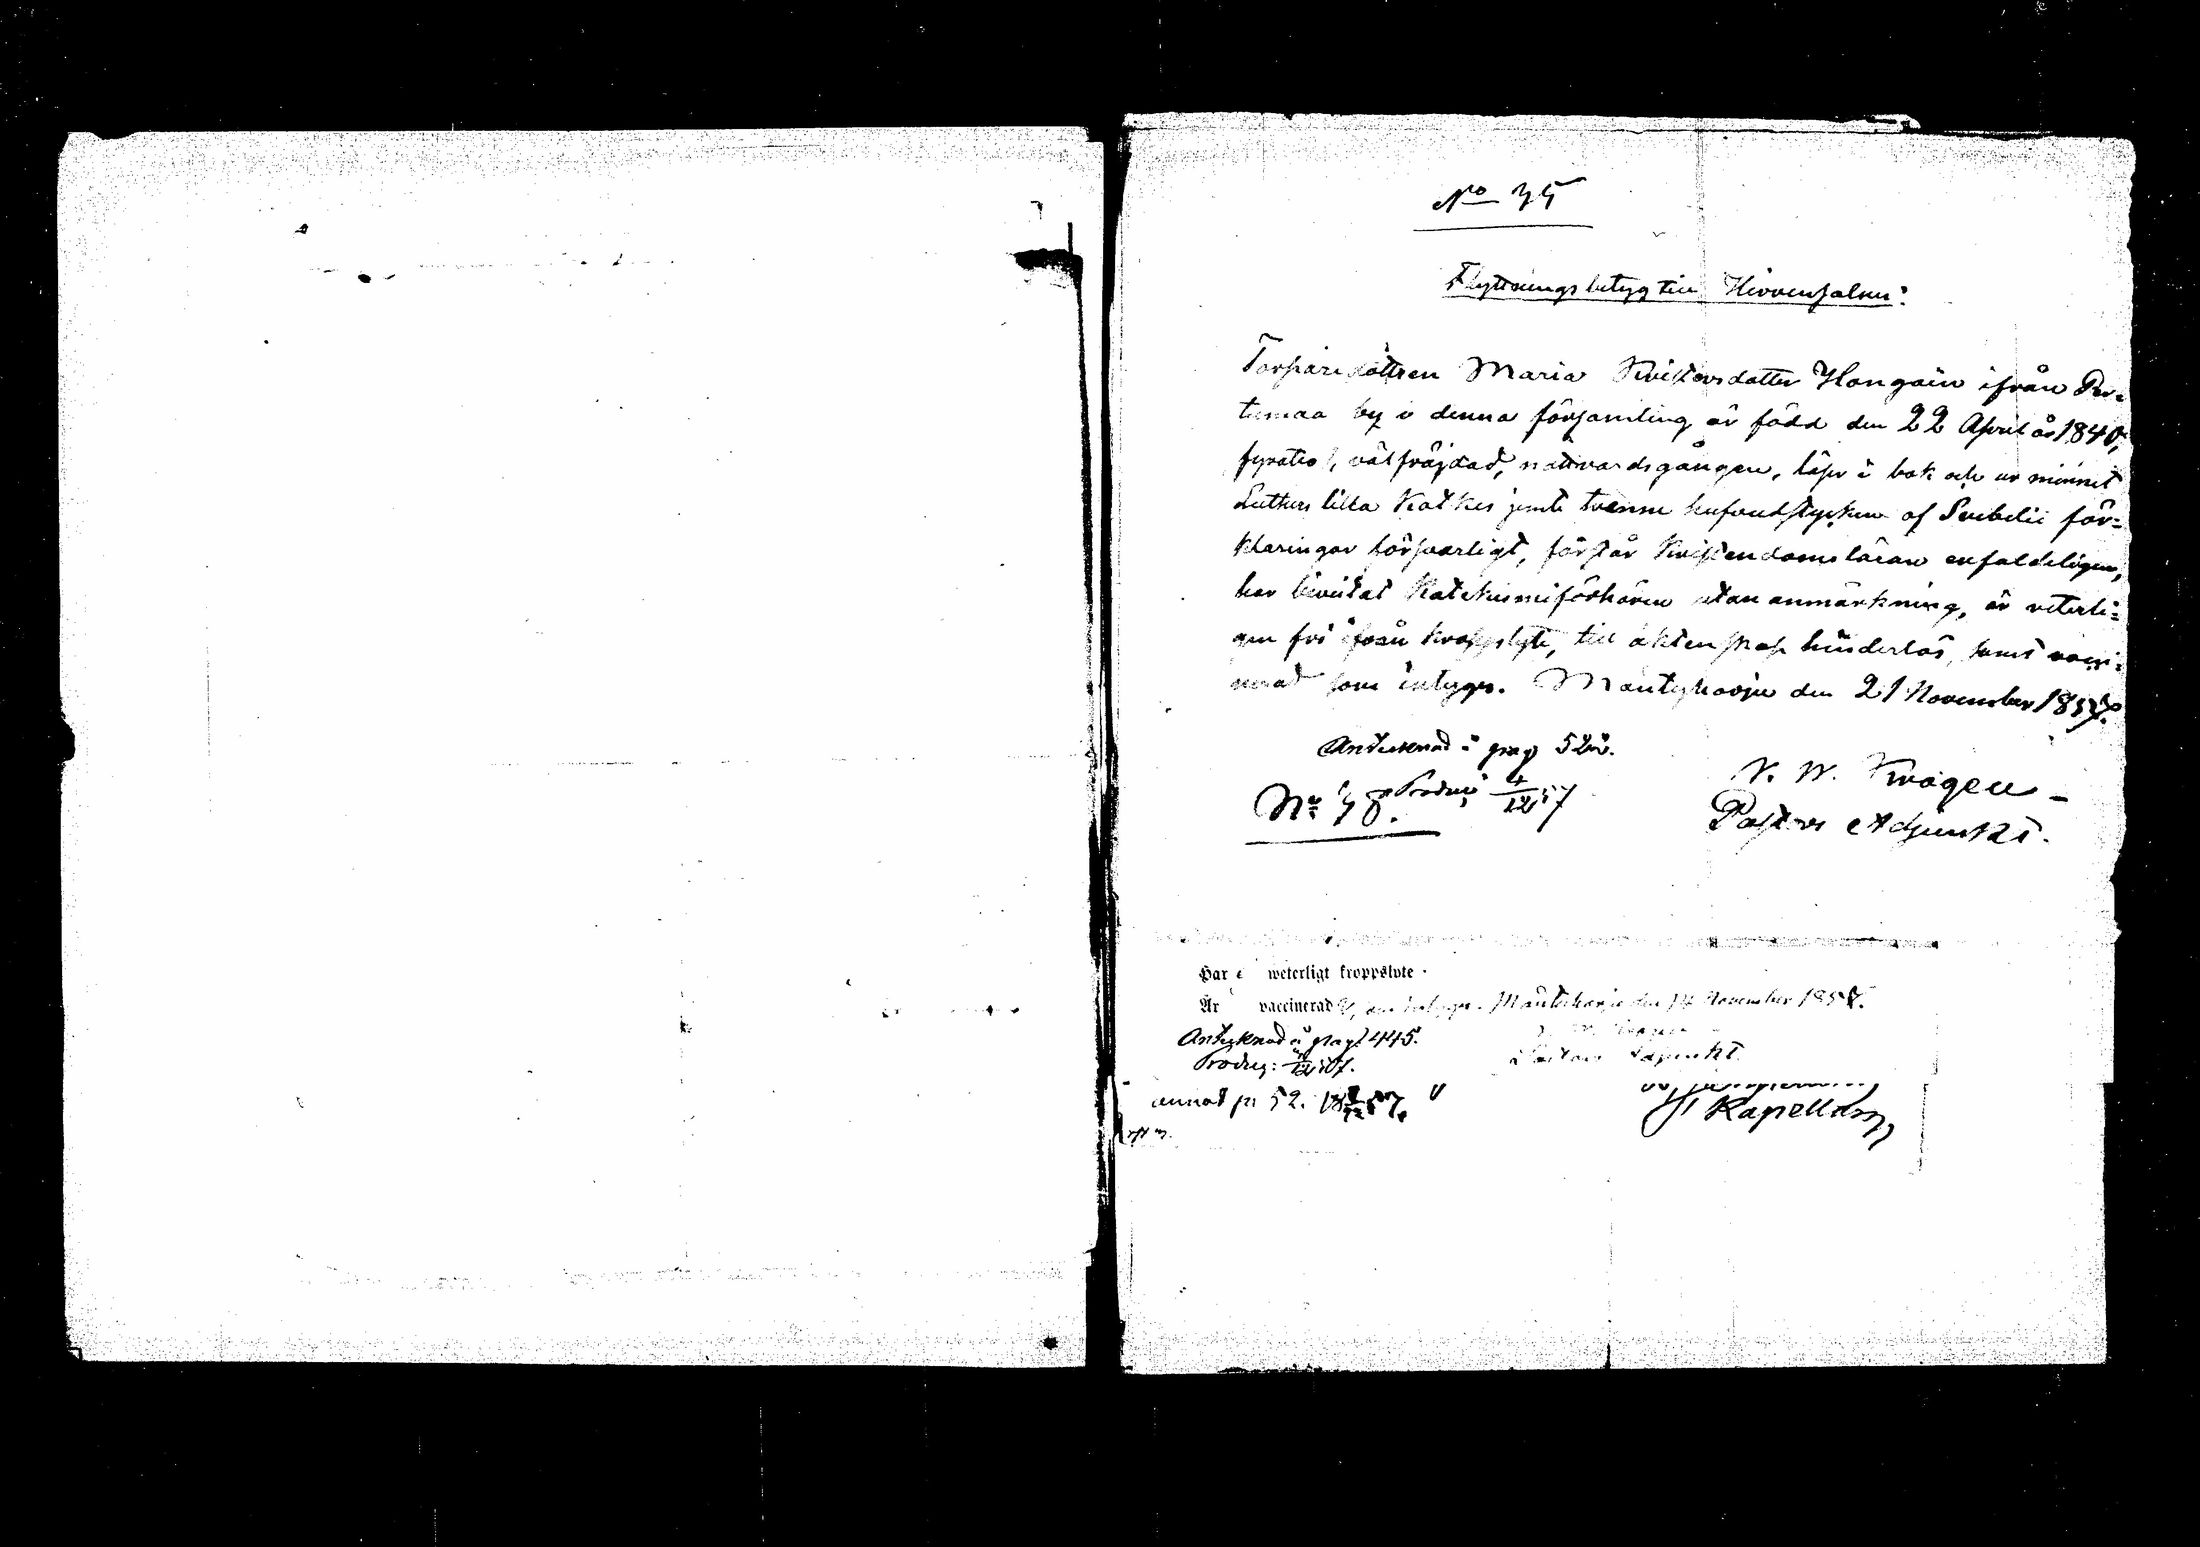 No 35
Flyttningsbetyg till Hirvensalmi:
Torparedottren Maria Kristersdotter Hongain ifrån Per-
tumaa by i denna församling är född den 22 April år 1840,
fyratio, välfräjdad, nattvardsgången, läser i bok och ur minnet
Luthers lilla Katkes jemte tvenne hufvudstycken af Svebelii för=
klaringar försvarligt, förstår Kristendomsläran enfaldeligen,
har bevistat Katekismiförhören utan anmärkning, är veterli=
gen fri ifrån kroppslyte, till äktenskap hinderlös, samt vacci=
nerad som intygas. Mäntyharju den 21 November 1857.
Antecknad å pag 522.
No 78. Produc 4/12 57
K. W. Krogen
Pastors Adjunkt.
Har weterligt kroppslyte
Är vaccinerad Mäntyharju den November 1857.
Antecknad å pag 445.
Produc: 12 57.
Pastors Adjunkt.
annot p. 52. 18 57.
Kapellan